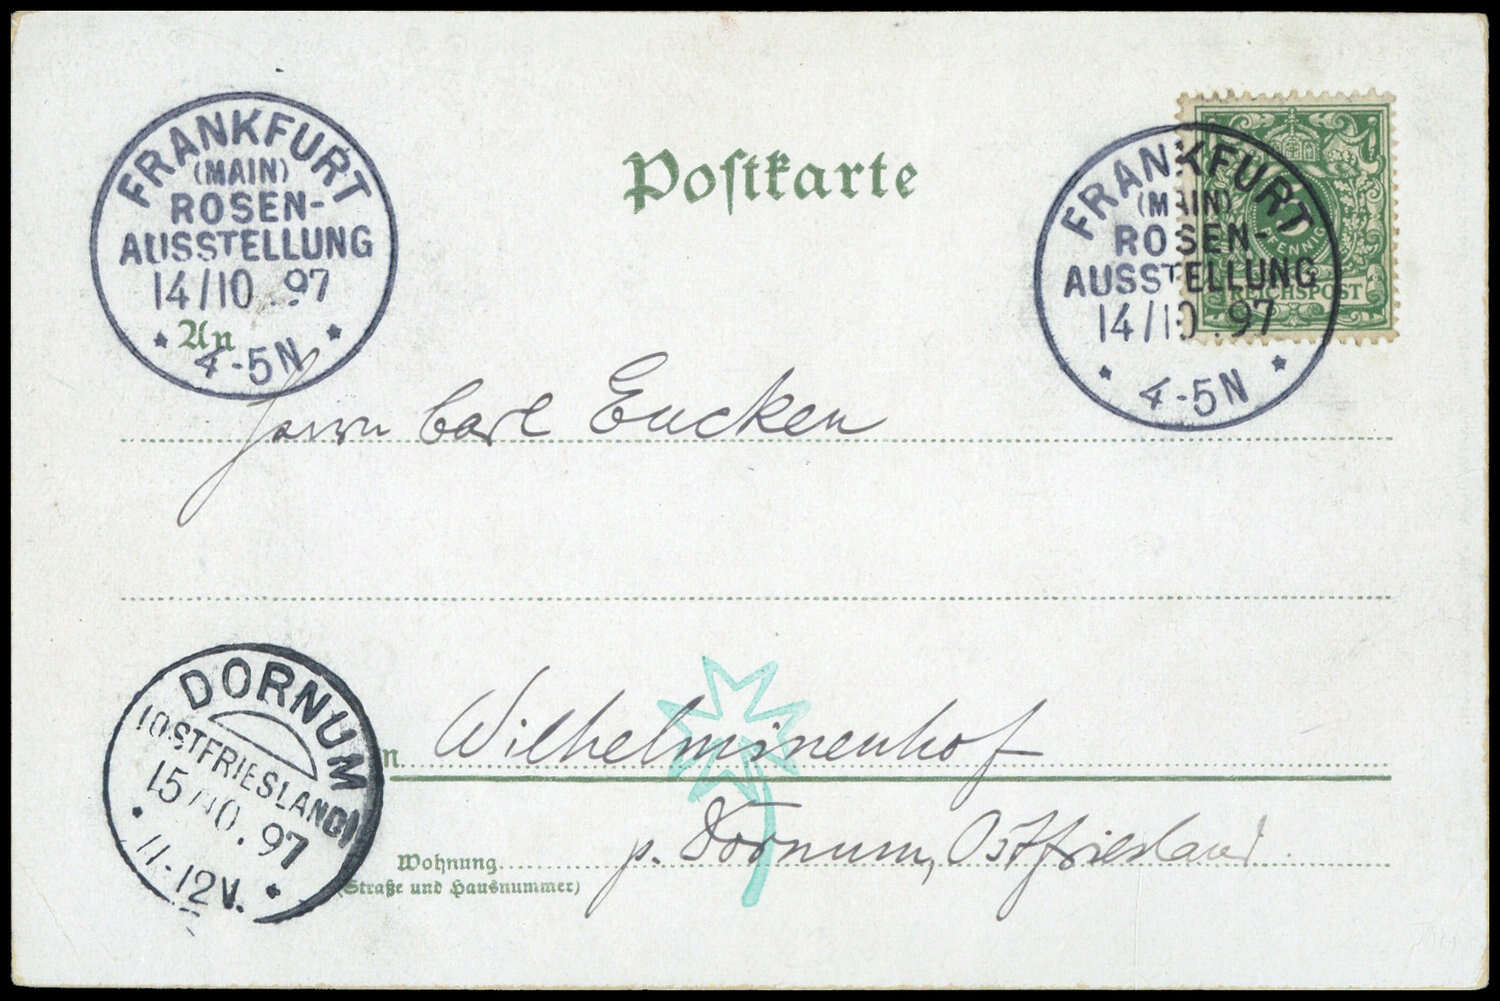 FRANKFURT
(MAIN)
ROSEN-
AUSSTELLUNG
14/10.97
4-5N
Postkarte
FRANKFURT
(MAIN)
ROSEN-
AUSSTELLUNG
14/10.97
4-5N
PFENNIG
REICHSPOST
An
Herrn Carl Eucken
DORNUM
(OSTFRIESLAND)
15/10.97
11-12V.
Wilhelminenhof
p. Dornum, Ostfriesland.
Wohnung
(Straße und Hausnummer)